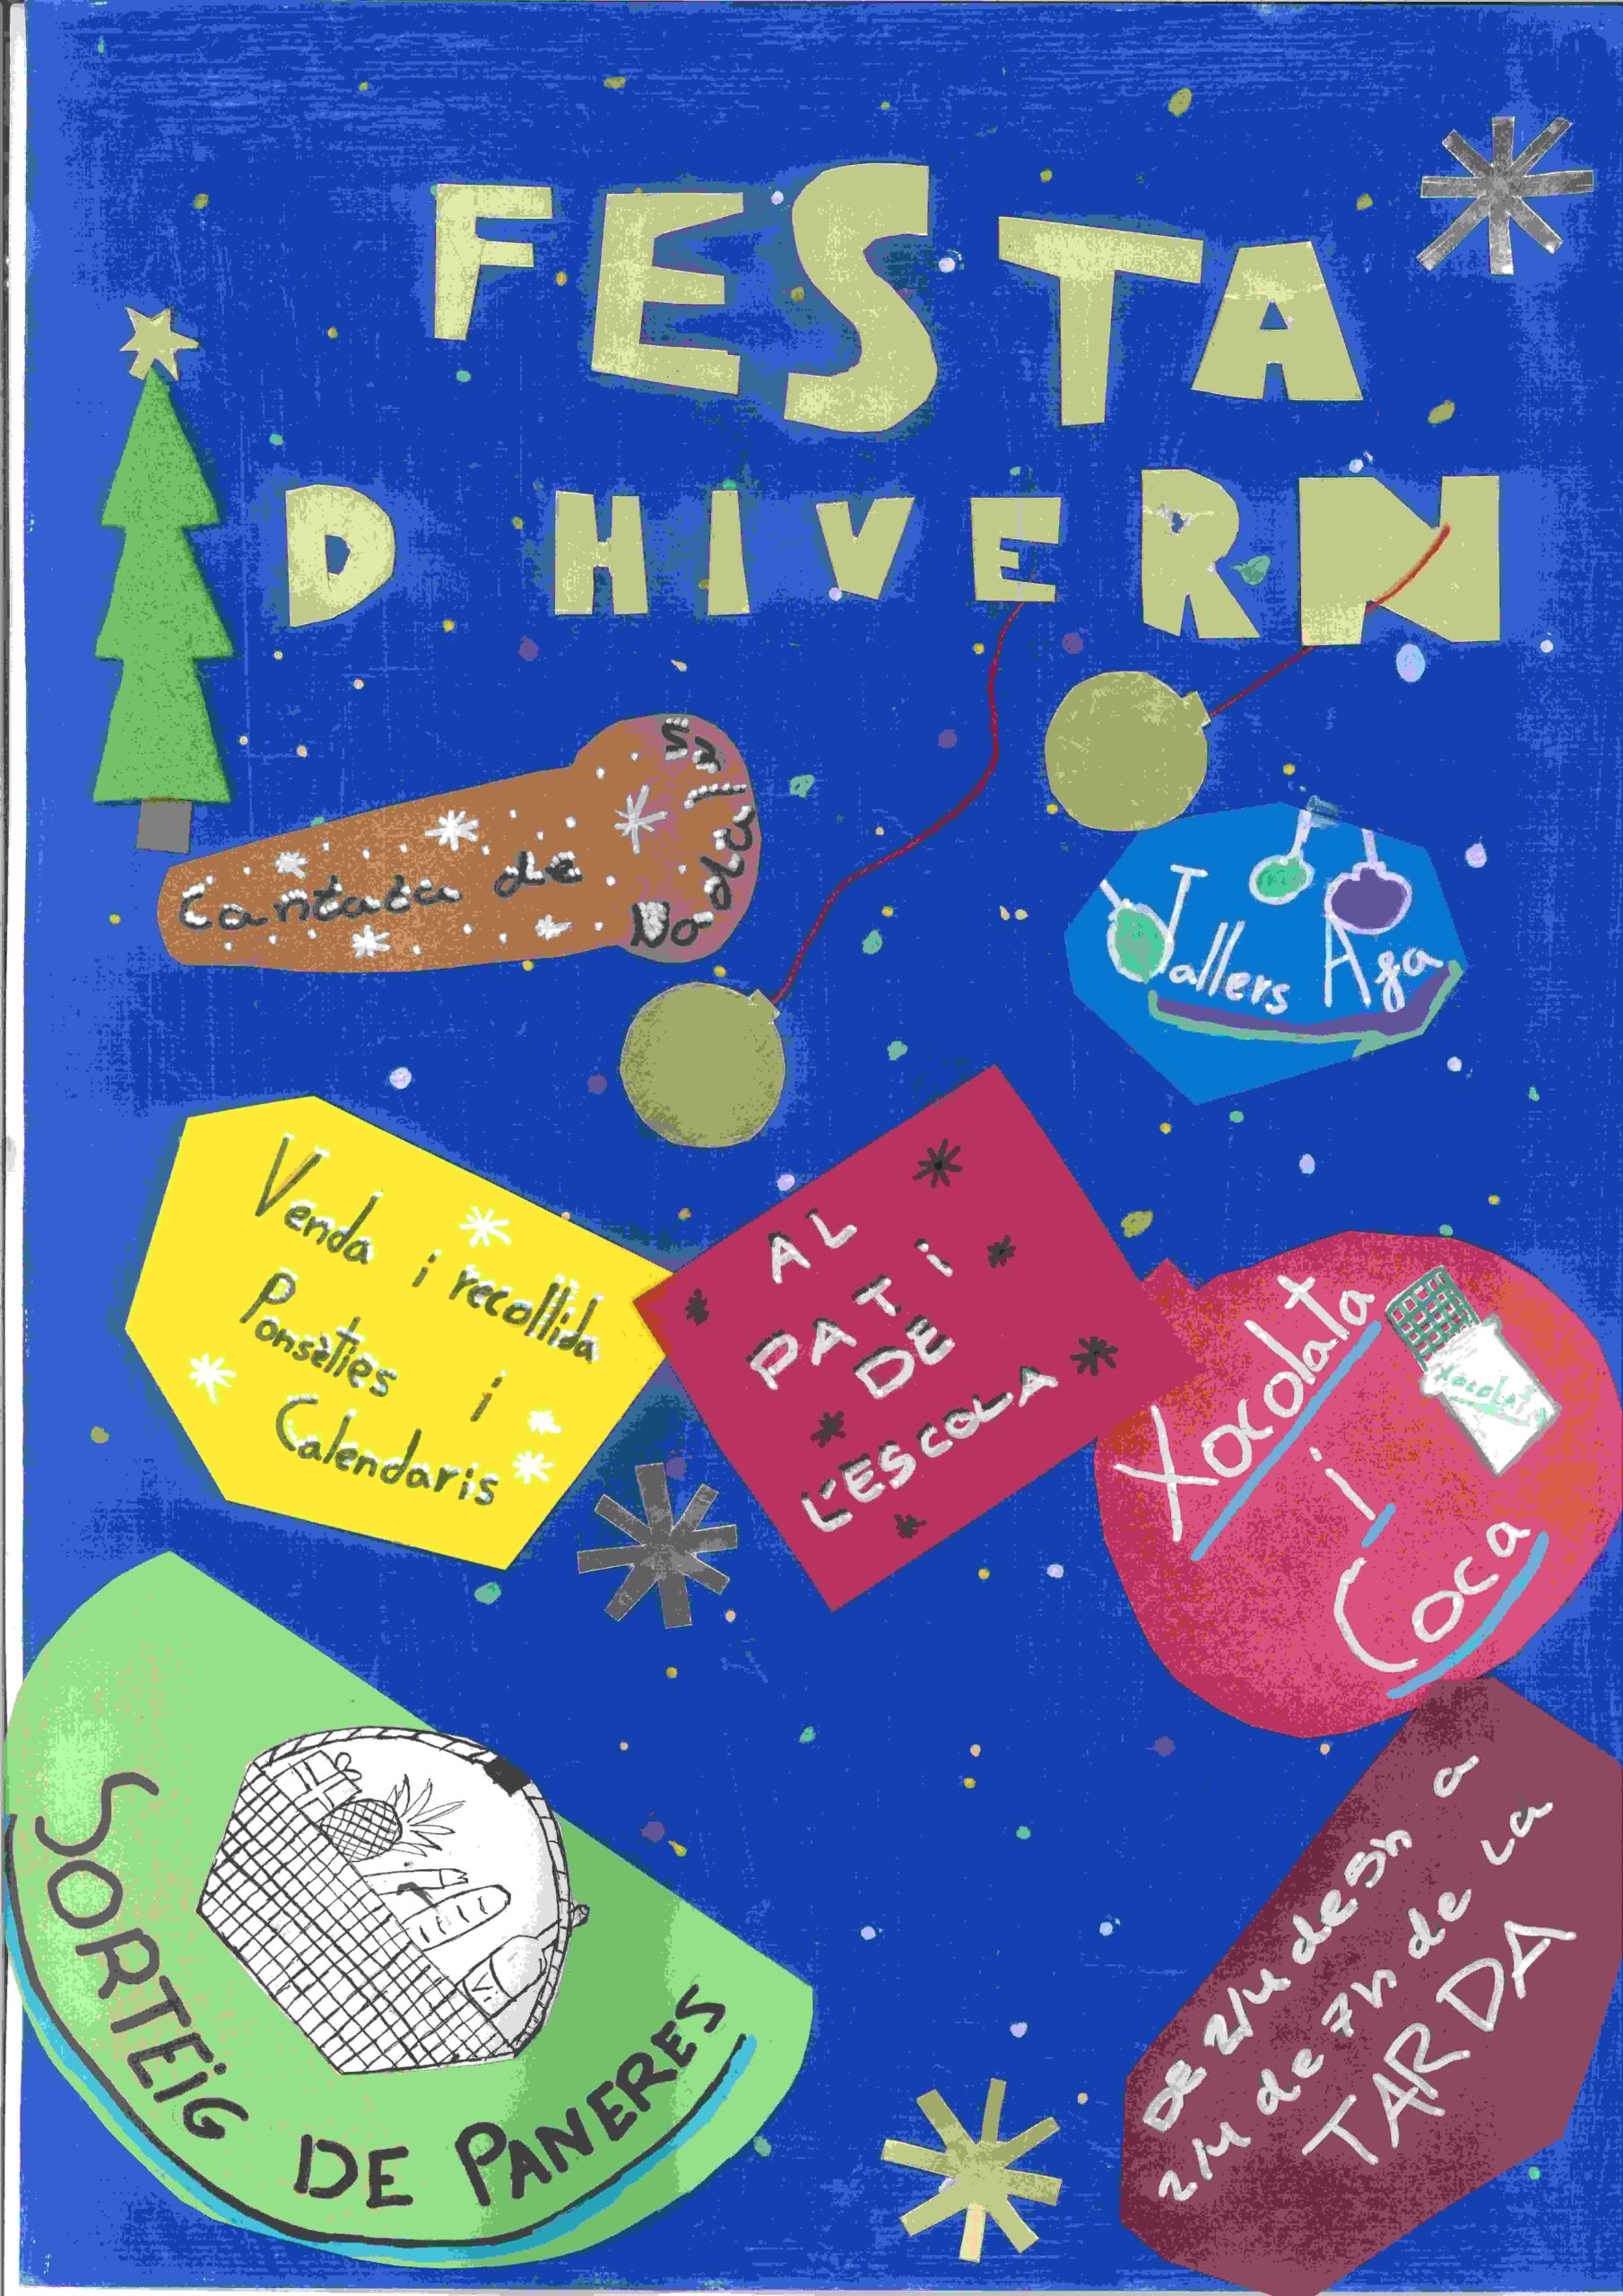 FESTA
D HIVERN
Cantata de
Nadales
Tallers Afa
Venda i recollida
Ponsèties i
Calendaris
AL
PATi
DE
L'ESCOLA
Xocolata
i
Coca
xocolata
SORTEiG DE PANERES
DE 2/4 de 5h a
2/4 de 7h de LA
TARDA